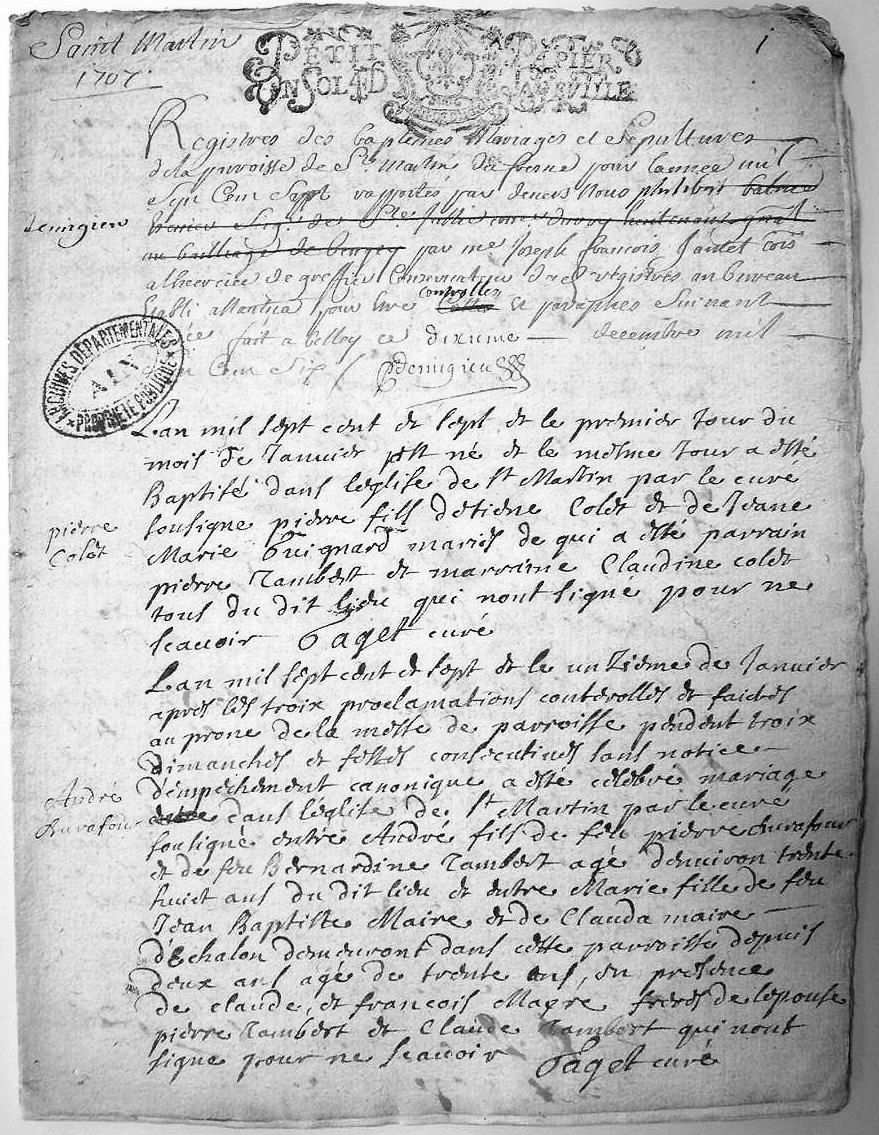 Saint Martin
1707
PETIT PAPIER
UN SOL 4 D LA FEUILLE
1
Registres des baptesmes Mariages et Sepultures
de la paroisse de St. Martin du fresne pour lannee mil
Sept Cent Sept rapportes par devers Nous philibert balme
demigieu
au bailliage de beugey par me Joseph françois Jantet Cõis
a lhexercice de greffier Conservateur des registres au bureau
controller
Establi a Nantua pour être et paraphes Suivant
fait a belley ce dixieme decembre mil
Cent Six / Demigieu
ARCHIVES DÉPARTEMENTALES
AIN
PROPRIÉTÉ PUBLIQUE
Lan mil sept cent et sept et le premier Jour du
mois de Janvier est né et le mesme Jour a esté
Baptisé dans leglise de st Martin par le curé
pierre
Colet
sousigne pierre fils detiene Colet et de Jeane
Marie Guignard mariés de qui a esté parrain
pierre Jambert et marraine Claudine colet
tous du dit lieu qui nont signé pour ne
scavoir Paget curé
Lan mil sept cent et sept et le unzieme de Janvier
apres les troix proclamations controllés et faictes
au prone de la messe de parroisse pendent troix
dimanches et festes consecutives sans notice
dempéchement canonique a esté célébré mariage
André
Churafour
dans leglise de st Martin par le curé
sousigné entre André fils de feu pierre churafour
et de feu Bernardine Jambert agé denviron trente
huict ans du dit lieu et entre Marie fille de feu
Jean Baptiste Maire et de Clauda maire
d'Echalon demeuront dans cette parroisse depuis
deux ans agé de trente ans, en presence
de claude, et francois Magre freres de lepouse
pierre Jambert et Claude Jambert qui nont
signe pour ne scavoir Paget curé